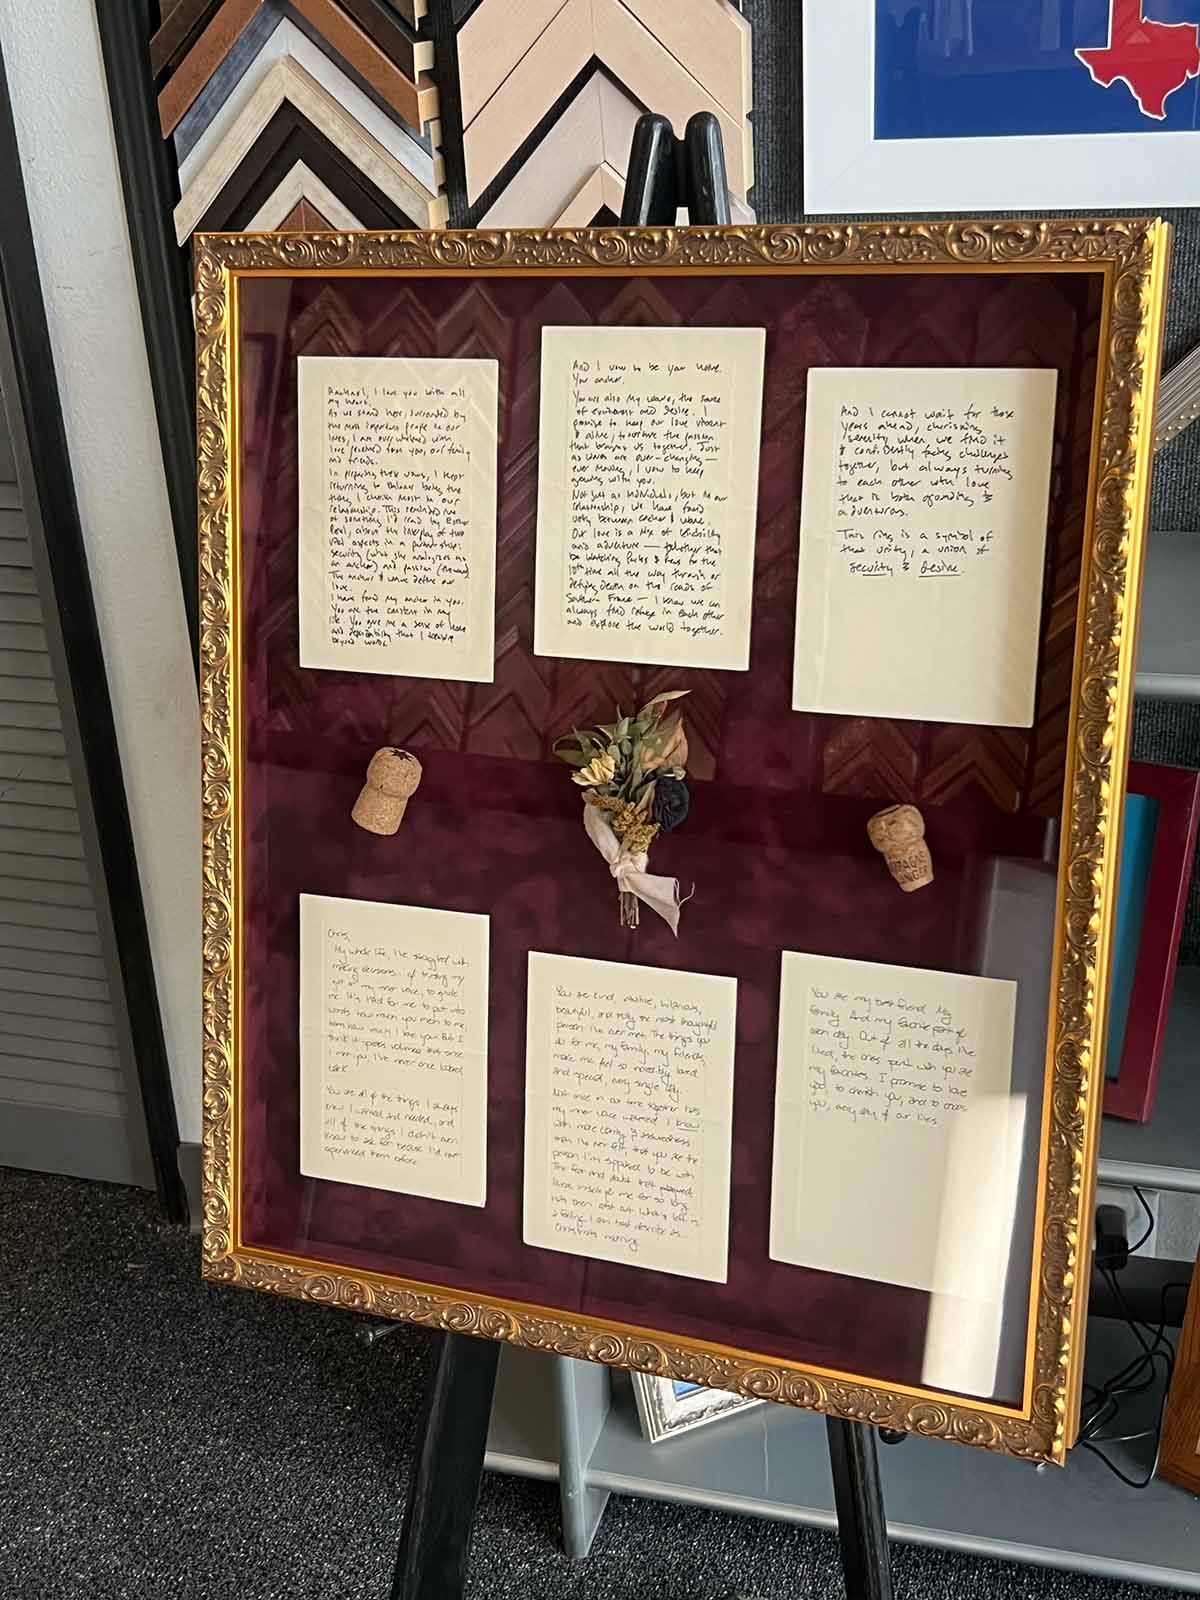 I love you with all
my heart.
As we stand here, surrounded by
the most important people in our
lives, I am overwhelmed with
love received from you, our family
and friends.
In preparing these vows, I kept
returning to
things I cherish most in our
relationship. This reminded me
of something I'd read by Esther
Perel, about the interplay of two
vital aspects in a partnership:
security (what she analogizes as
an anchor) and passion
The anchor & wave define our
love.
I have found my anchor in you.
You are the constant in my
life. You give me a sense of home
and dependability that I treasure
beyond words.
And I vow to be your home.
Your anchor.
You are also my wave, the source
of excitement and desire. I
promise to keep our love vibrant
& alive, to nurture the passion
that brought us together. Just
as waves are ever-changing —
ever moving, I vow to keep
growing with you.
Not just as individuals, but in our
relationship, we have found
unity between anchor & wave.
Our love is a mix of
and adventure — whether that
be watching Parks & Rec for the
10th time all the way through or
defying death on the roads of
Southern France — I know we can
always find refuge in each other
and explore the world together.
And I cannot wait for those
years ahead, cherishing
serenity when we find it
& confidently facing challenges
together, but always turning
to each other with love
that is both grounding &
adventurous.
This ring is a symbol of
that unity, a union of
security & desire.
Chris,
My whole life, I've struggled with
making decisions of trusting my
gut or my inner voice, to guide
me. It's hard for me to put into
words how much you mean to me,
how much I love you. But I
think it speaks volumes that since
I met you, I've never once looked
back.
You are all of the things I always
knew I wanted and needed, and
all of the things I didn't even
know to ask for because I'd never
experienced them before.
You are kind, hilarious,
beautiful, and truly the most thoughtful
person I've ever met. The things you
do for me, my family, my friends,
make me feel so incredibly loved
and special, every single day.
Not once in our time together has
my inner voice wavered. I know
with more clarity & assuredness
than I've ever felt, that you are the
person I'm supposed to be with.
The fear and doubt that
me for so long
has been cast out. What's left is
a feeling I can best describe as...
Christmas morning.
You are my best friend. My
family. And my favorite part of
every day. Out of all the days I've
lived, the ones spent with you are
my favorites. I promise to love
you, to cherish you, and to choose
you, every day of our lives.